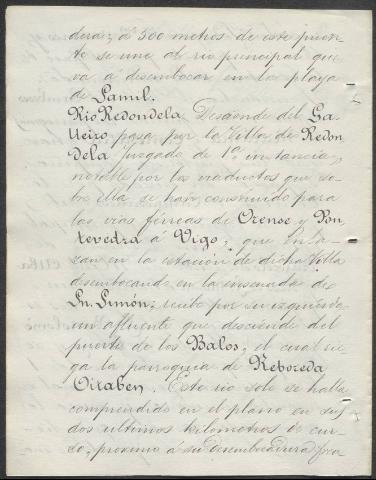 dera; á 500 metros de este puen-
te se une al rio principal que
va á desembocar en la playa
de Samil.
Rio Redondela. Desciende del Ga-
lleiro pasa por la Villa de Redon
dela Juzgado de 1ª instancia,
notable por los viaductos que so-
bre ella se han construido para
las vias férreas de Orense y Pon
tevedra á Vigo, que enla-
zan en la estación de dicha Villa
desembocando en la ensenada de
Sn. Simón; recibe por su izquierda
un afluente que desciende del
puerto de los Balos, el cual rie
ga la parroquia de Reboreda
Este rio solo se halla
comprendido en el plano en sus
dos ultimos kilometros de cur-
so, proximo á su desembocadura